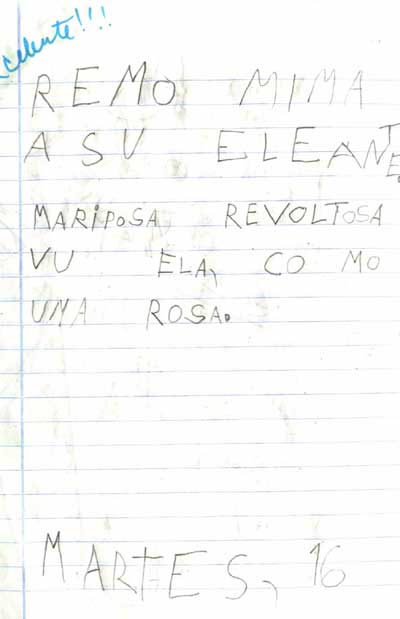 celente!!!
REMO MIMA
A SU ELEANTE.
MARIPOSA, REVOLTOSA
VU ELA, CO MO
UNA ROSA.
MARTES, 16